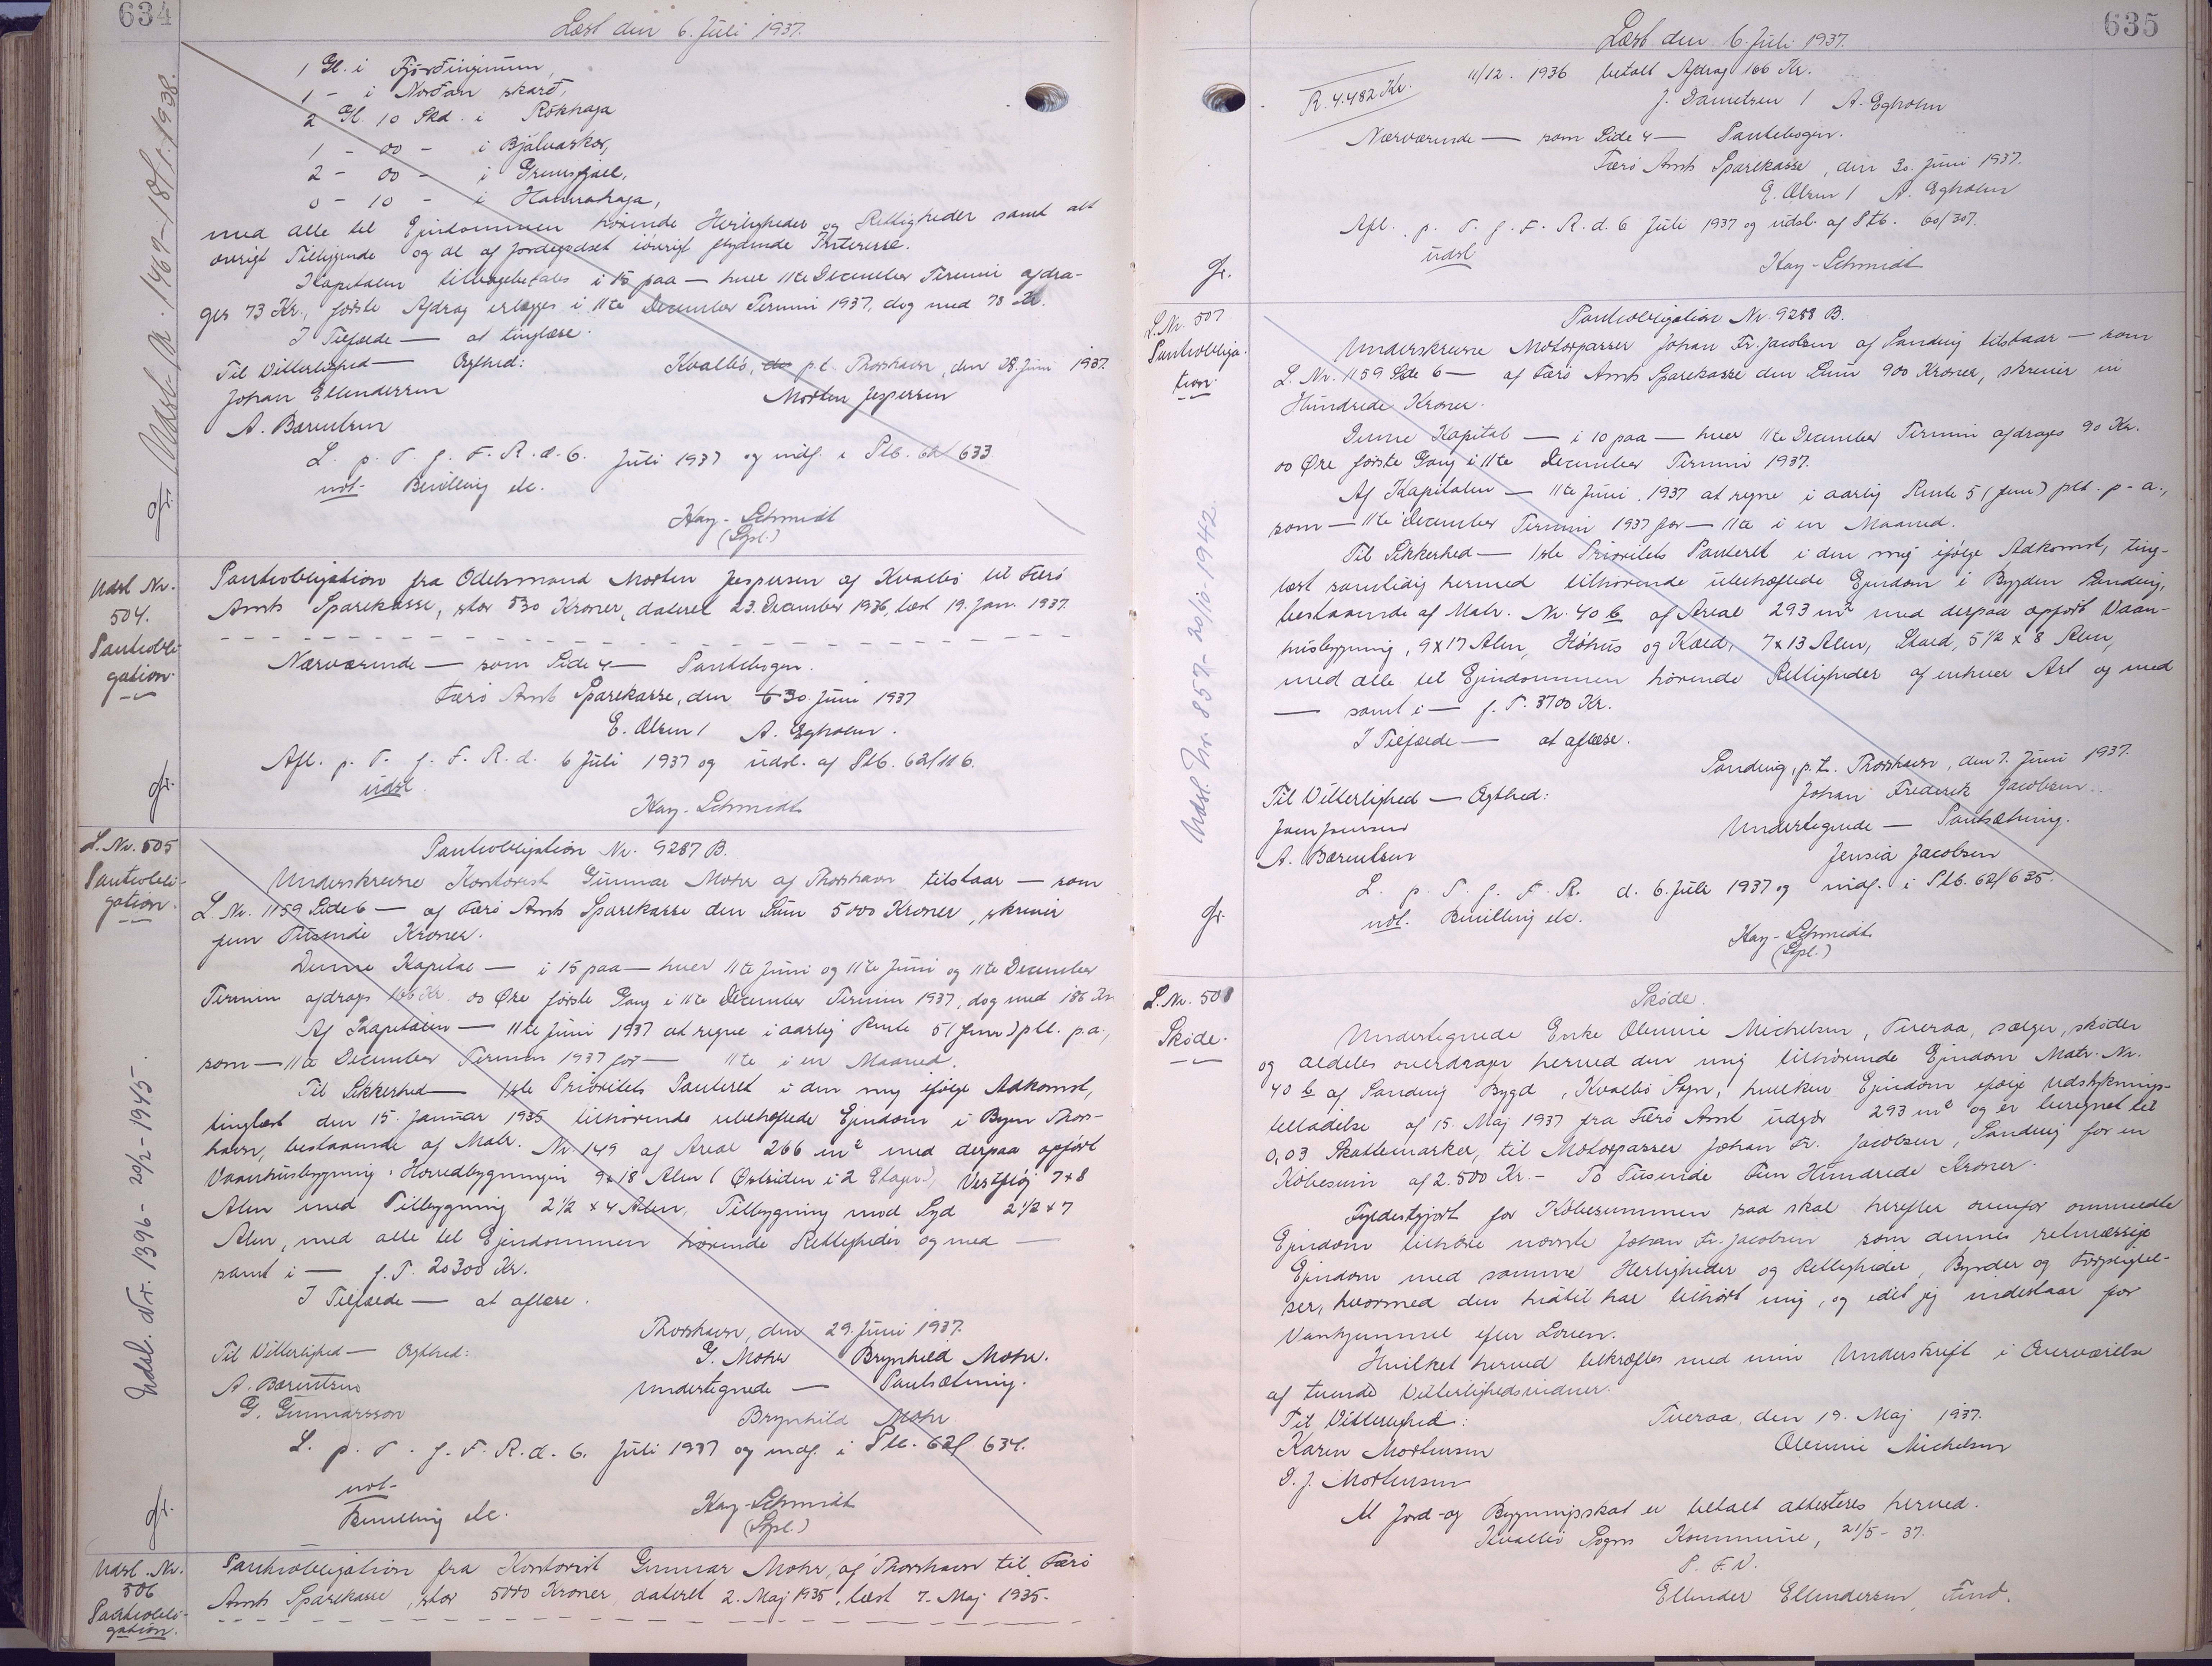 634
Læst den 6. Juli 1937.
1 Gl. i Fjórðingunum,
1 - i Norðan skarð,
2 Gl. 10 Skd. i Rókhaga
1 - 00 - i Bjálvaskor,
2 - 00 - i
0 - 10 - i
med alle til Ejendommen hørende Herligheder og Rettigheder samt alt
øvrigt Tilliggende og al af Jordegodset iøvrigt flydende Interesse.
Kapitalen tilbagebetales i 15 paa — hver 11te December Termin afdra-
ges 73 Kr., første Afdrag erlægges i 11te December Termin 1937, dog med 78 Kr.
I Tilfælde — at tinglæse.
Til Vitterlighed — Ægthed: Kvalbø, p.t. Thorshavn, den 28. Juni 1937.
Johan Ellendersen Morten Jespersen
A. Barentsen
L. p. T. f. F. R. d. 6. Juli 1937 og indf. i Ptb. 62/633
not. Bevilling etc.
Kay-Schmidt
(Spl.)
Udsl. Nr. 1469 - 18/1. 1938.
Gr.
Udsl Nr.
504.
Pantobli-
gation.
Pantobligation fra Odelsmand Morten Jespersen af Kvalbø til Færø
Amts Sparekasse, stor 530 Kroner, dateret 23. December 1936, læst 19. Jan. 1937.
Nærværende — som Side 4 — Pantebogen.
Færø Amts Sparekasse, den 30. Juni 1937
E. Olsen / A. Egholm.
Afl. p. T. f. F. R. d. 6 Juli 1937 og udsl. af Ptb. 62/116.
udsl.
Kay-Schmidt
Gr.
L. Nr. 505
Pantobli-
gation.
Pantobligation Nr. 9287 B.
Underskrevne Kontorist Gunnar Mohr af Thorshavn tilstaar — som
L. Nr. 1159 Side 6 — af Færø Amts Sparekasse den Sum 5000 Kroner, skriver
fem Tusende Kroner.
Denne Kapital — i 15 paa — hver 11te Juni og 11te Juni og 11te December
Termin afdrages 166 Kr. 00 Øre første Gang i 11te December Termin 1937, dog med 186 Kr
Af Kapitalen — 11te Juni 1937 at regne i aarlig Rente 5 (fem) pCt. p.a.,
som — 11te December Termin 1937 for — 11te i en Maaned.
Til Sikkerhed — 1ste Prioritets Panteret i den mig ifølge Adkomst,
tinglæst den 15. Januar 1935 tilhørende ubehæftede Ejendom i Byen Thors-
havn, bestaaende af Matr. Nr. 149 af Areal 266 m² med derpaa opført
Vaanhusbygning, Hovedbygningen 9x18 Alen (Østsiden i 2 Etager), Vestfløj 7x8
Alen med Tilbygning 2½ x 4 Alen, Tilbygning mod Syd 2½ x 7
Alen, med alle til Ejendommen hørende Rettigheder og med —
samt i — f. T. 20300 Kr.
I Tilfælde — at aflæse.
Thorshavn, den 29. Juni 1937.
Til Vitterlighed — Ægthed: G. Mohr Brynhild Mohr.
A. Barentsen Undertegnede — Pantsætning.
G. Gunnarsson Brynhild Mohr
L. p. T. f. F. R. d. 6. Juli 1937 og indf. i Ptb. 62/634.
not.
Bevilling etc. Kay-Schmidt
(Spl.)
Udsl. Nr. 1396 - 20/2 - 1945.
Gr.
Udsl. Nr.
506
Pantobli-
gation.
Pantobligation fra Kontorist Gunnar Mohr, af Thorshavn til Færø
Amts Sparekasse, stor 5000 Kroner, dateret 2. Maj 1935, læst 7. Maj 1935.
635
Læst den 6. Juli 1937.
R. 4.482 Kr.
11/12. 1936 betalt Afdrag 166 Kr.
J. Danielsen / A. Egholm
Nærværende — som Side 4 — Pantebogen.
Færø Amts Sparekasse, den 30. Juni 1937.
E. Olsen / A. Egholm
Afl. p. T. f. F. R. d. 6 Juli 1937 og udsl. af Ptb. 60/307.
udsl
Kay-Schmidt
Gr.
L. Nr. 507
Pantobliga-
tion.
Pantobligation Nr. 9288 B.
Underskrevne Motorpasser Johan Fr. Jacobsen af Sandvig tilstaar — som
L. Nr. 1159 Side 6 — af Færø Amts Sparekasse den Sum 900 Kroner, skriver ni
Hundrede Kroner.
Denne Kapital — i 10 paa — hver 11te December Termin afdrages 90 Kr.
00 Øre første Gang i 11te December Termin 1937.
Af Kapitalen — 11te Juni 1937 at regne i aarlig Rente 5 (fem) pCt. p.a.,
som — 11te December Termin 1937 for — 11te i en Maaned.
Til Sikkerhed — 1ste Prioritets Panteret i den mig ifølge Adkomst, ting-
læst samtidig hermed tilhørende ubehæftede Ejendom i Bygden Sandvig,
bestaaende af Matr. Nr. 40 b af Areal 293 m² med derpaa opført Vaan-
husbygning, 9x17 Alen, Høhus og Kæld, 7x13 Alen, Stald, 5½ x 8 Alen,
med alle til Ejendommen hørende Rettigheder af enhver Art og med
— samt i — f. T. 3700 Kr.
I Tilfælde — at aflæse.
Sandvig, p.t. Thorshavn, den 7. Juni 1937.
Til Vitterlighed — Ægthed: Johan Frederik Jacobsen.
Undertegnede — Pantsætning.
A. Barentsen Jensia Jacobsen
L. p. T. f. F. R. d. 6. Juli 1937 og indf. i Ptb. 62/635.
not. Bevilling etc.
Kay-Schmidt
(Spl.)
Udsl. Nr. 857 - 20/10 - 1942.
Gr.
L. Nr. 508
Skøde.
Skøde.
Undertegnede Enke Olevine Michelsen, Tveraa, sælger, skøder
og aldeles overdrager herved den mig tilhørende Ejendom Matr. Nr.
40 b af Sandvig Bygd, Kvalbø Sogn, hvilken Ejendom ifølge Udstyknings-
tilladelse af 15. Maj 1937 fra Færø Amt udgør 293 m² og er beregnet til
0,03 Skattemarker, til Motorpasser Johan Fr. Jacobsen, Sandvig for en
Købesum af 2.500 Kr. - To Tusinde Fem Hundrede Kroner.
Fyldestgjort for Købesummen saa skal herefter ovenfor ommeldte
Ejendom tilhøre nævnte Johan Fr. Jacobsen som dennes retmæssige
Ejendom med samme Herligheder og Rettigheder, Byrder og Forpligtel-
ser, hvormed den hidtil har tilhørt mig, og idet jeg indestaar for
Vanhjemmel efter Loven.
Hvilket herved bekræftes med min Underskrift i Overværelse
af tvende Vitterlighedsvidner.
Til Vitterlighed: Tveraa, den 19. Maj 1937.
Karen Mortensen Olevine Michelsen
D. J. Mortensen
At Jord- og Bygningsskat er betalt attesteres herved.
Kvalbø Sogns Kommune, 21/5 - 37.
P. F. V.
Ellender Ellendersen, Fmd.